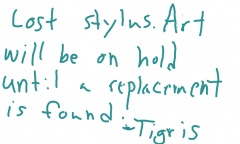 Lost stylus. Art
will be on hold
until a replacment
is found :-Tigris